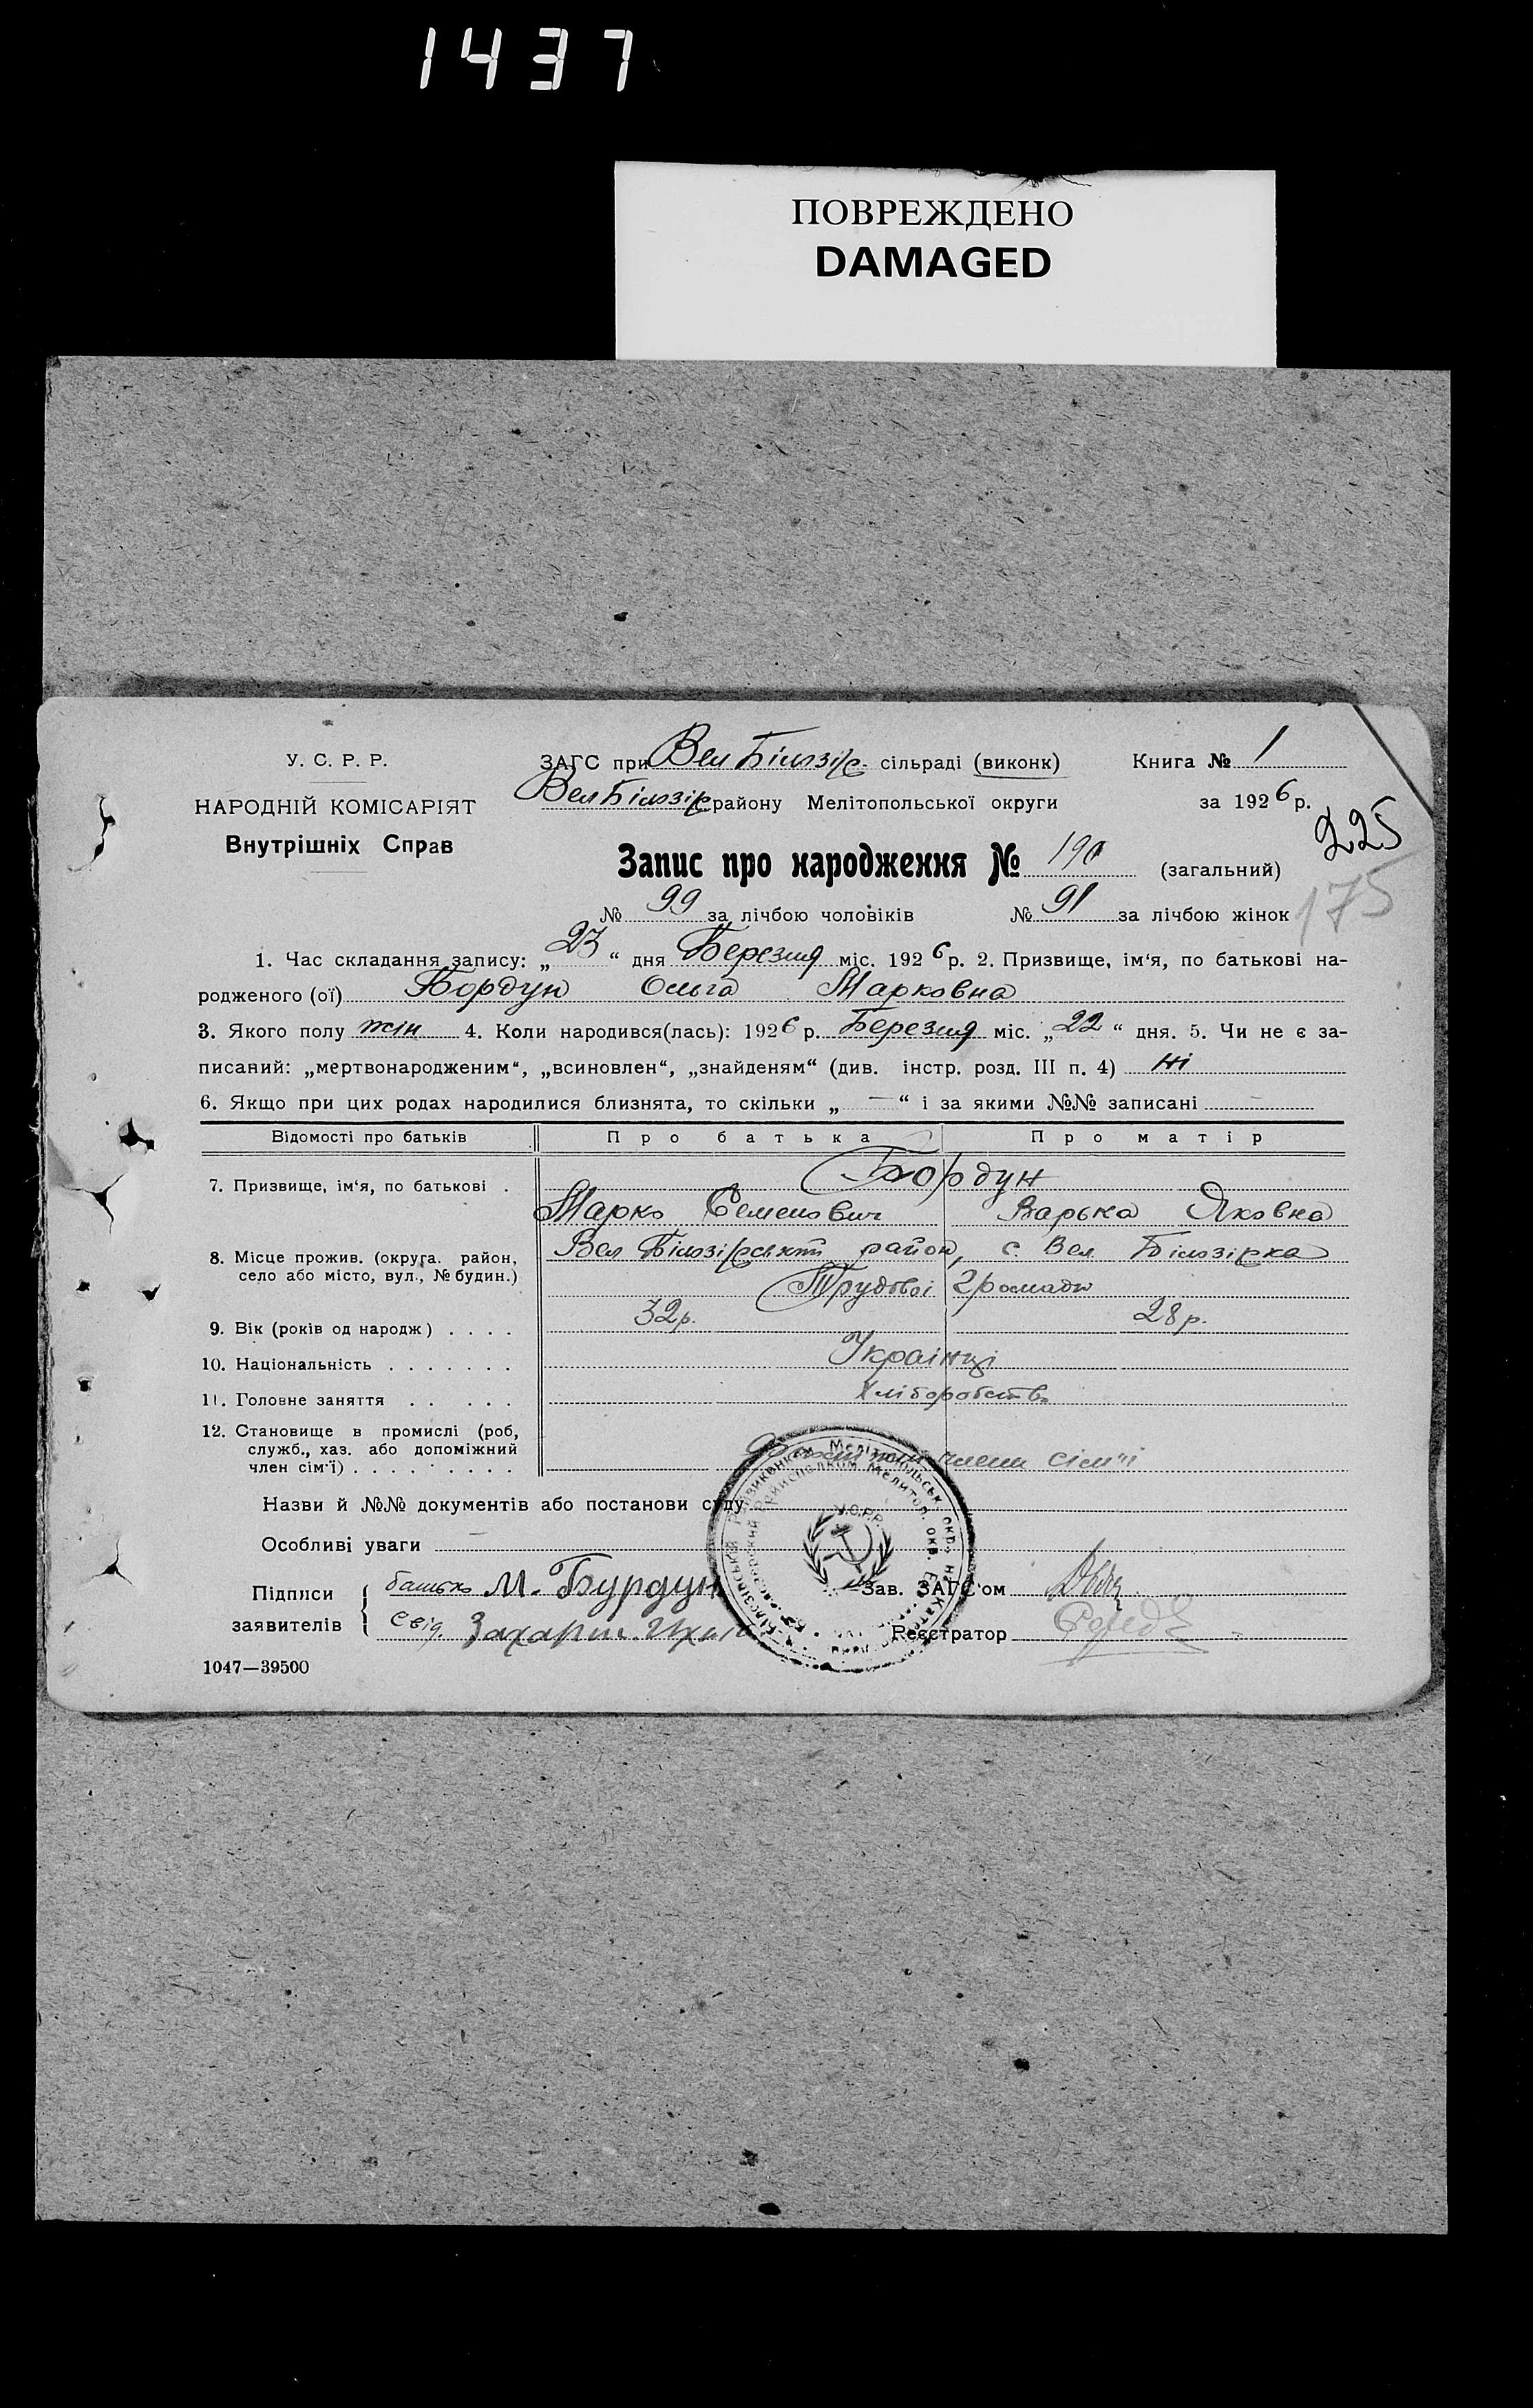 1437
ПОВРЕЖДЕНО
DAMAGED
У. С. Р. Р.
ЗАГС при Вел Білозір. сільраді (виконк) Книга № 1
НАРОДНІЙ КОМІСАРІЯТ
Вел Білозір району Мелітопольської округи за 1926 р.
Внутрішніх Справ
225
Запис про народження № 190 (загальний)
175
№ 99 за лічбою чоловіків № 91 за лічбою жінок
1. Час складання запису: „23“ дня Березня міс. 1926 р. 2. Призвище, ім‘я, по батькові на-
родженого (ої) Бордун Ольга Марковна
3. Якого полу жін 4. Коли народився(лась): 1926 р. Березня міс. „22“ дня. 5. Чи не є за-
писаний: „мертвонародженим“, „всиновлен“, „знайденям“ (див. інстр. розд. III п. 4) ні
6. Якщо при цих родах народилися близнята, то скільки „ — “ і за якими №№ записані —
Відомості про батьків Про батька Про матір
Бордун
7. Призвище, ім‘я, по батькові .
Марко Семенович Варька Яковна
8. Місце прожив. (округа. район, село або місто, вул., № будин.)
Вел Білозірський район, с. Вел Білозірка
Трудової громади
9. Вік (років од народж) . . . . 32 р. 28 р.
10. Національність . . . . . . . Українці
11. Головне заняття . . . . . Хліборобство
12. Становище в промислі (роб,
служб., хаз. або допоміжний
член сім‘ї) . . . . . . . . . члени сім'ї
Назви й №№ документів або постанови суду
Особливі уваги
Підписи батько М. Бурдун Зав. ЗАГС‘ом
заявителів Свід. Захарий Реєстратор
У.С.Р.Р.
1047—39500